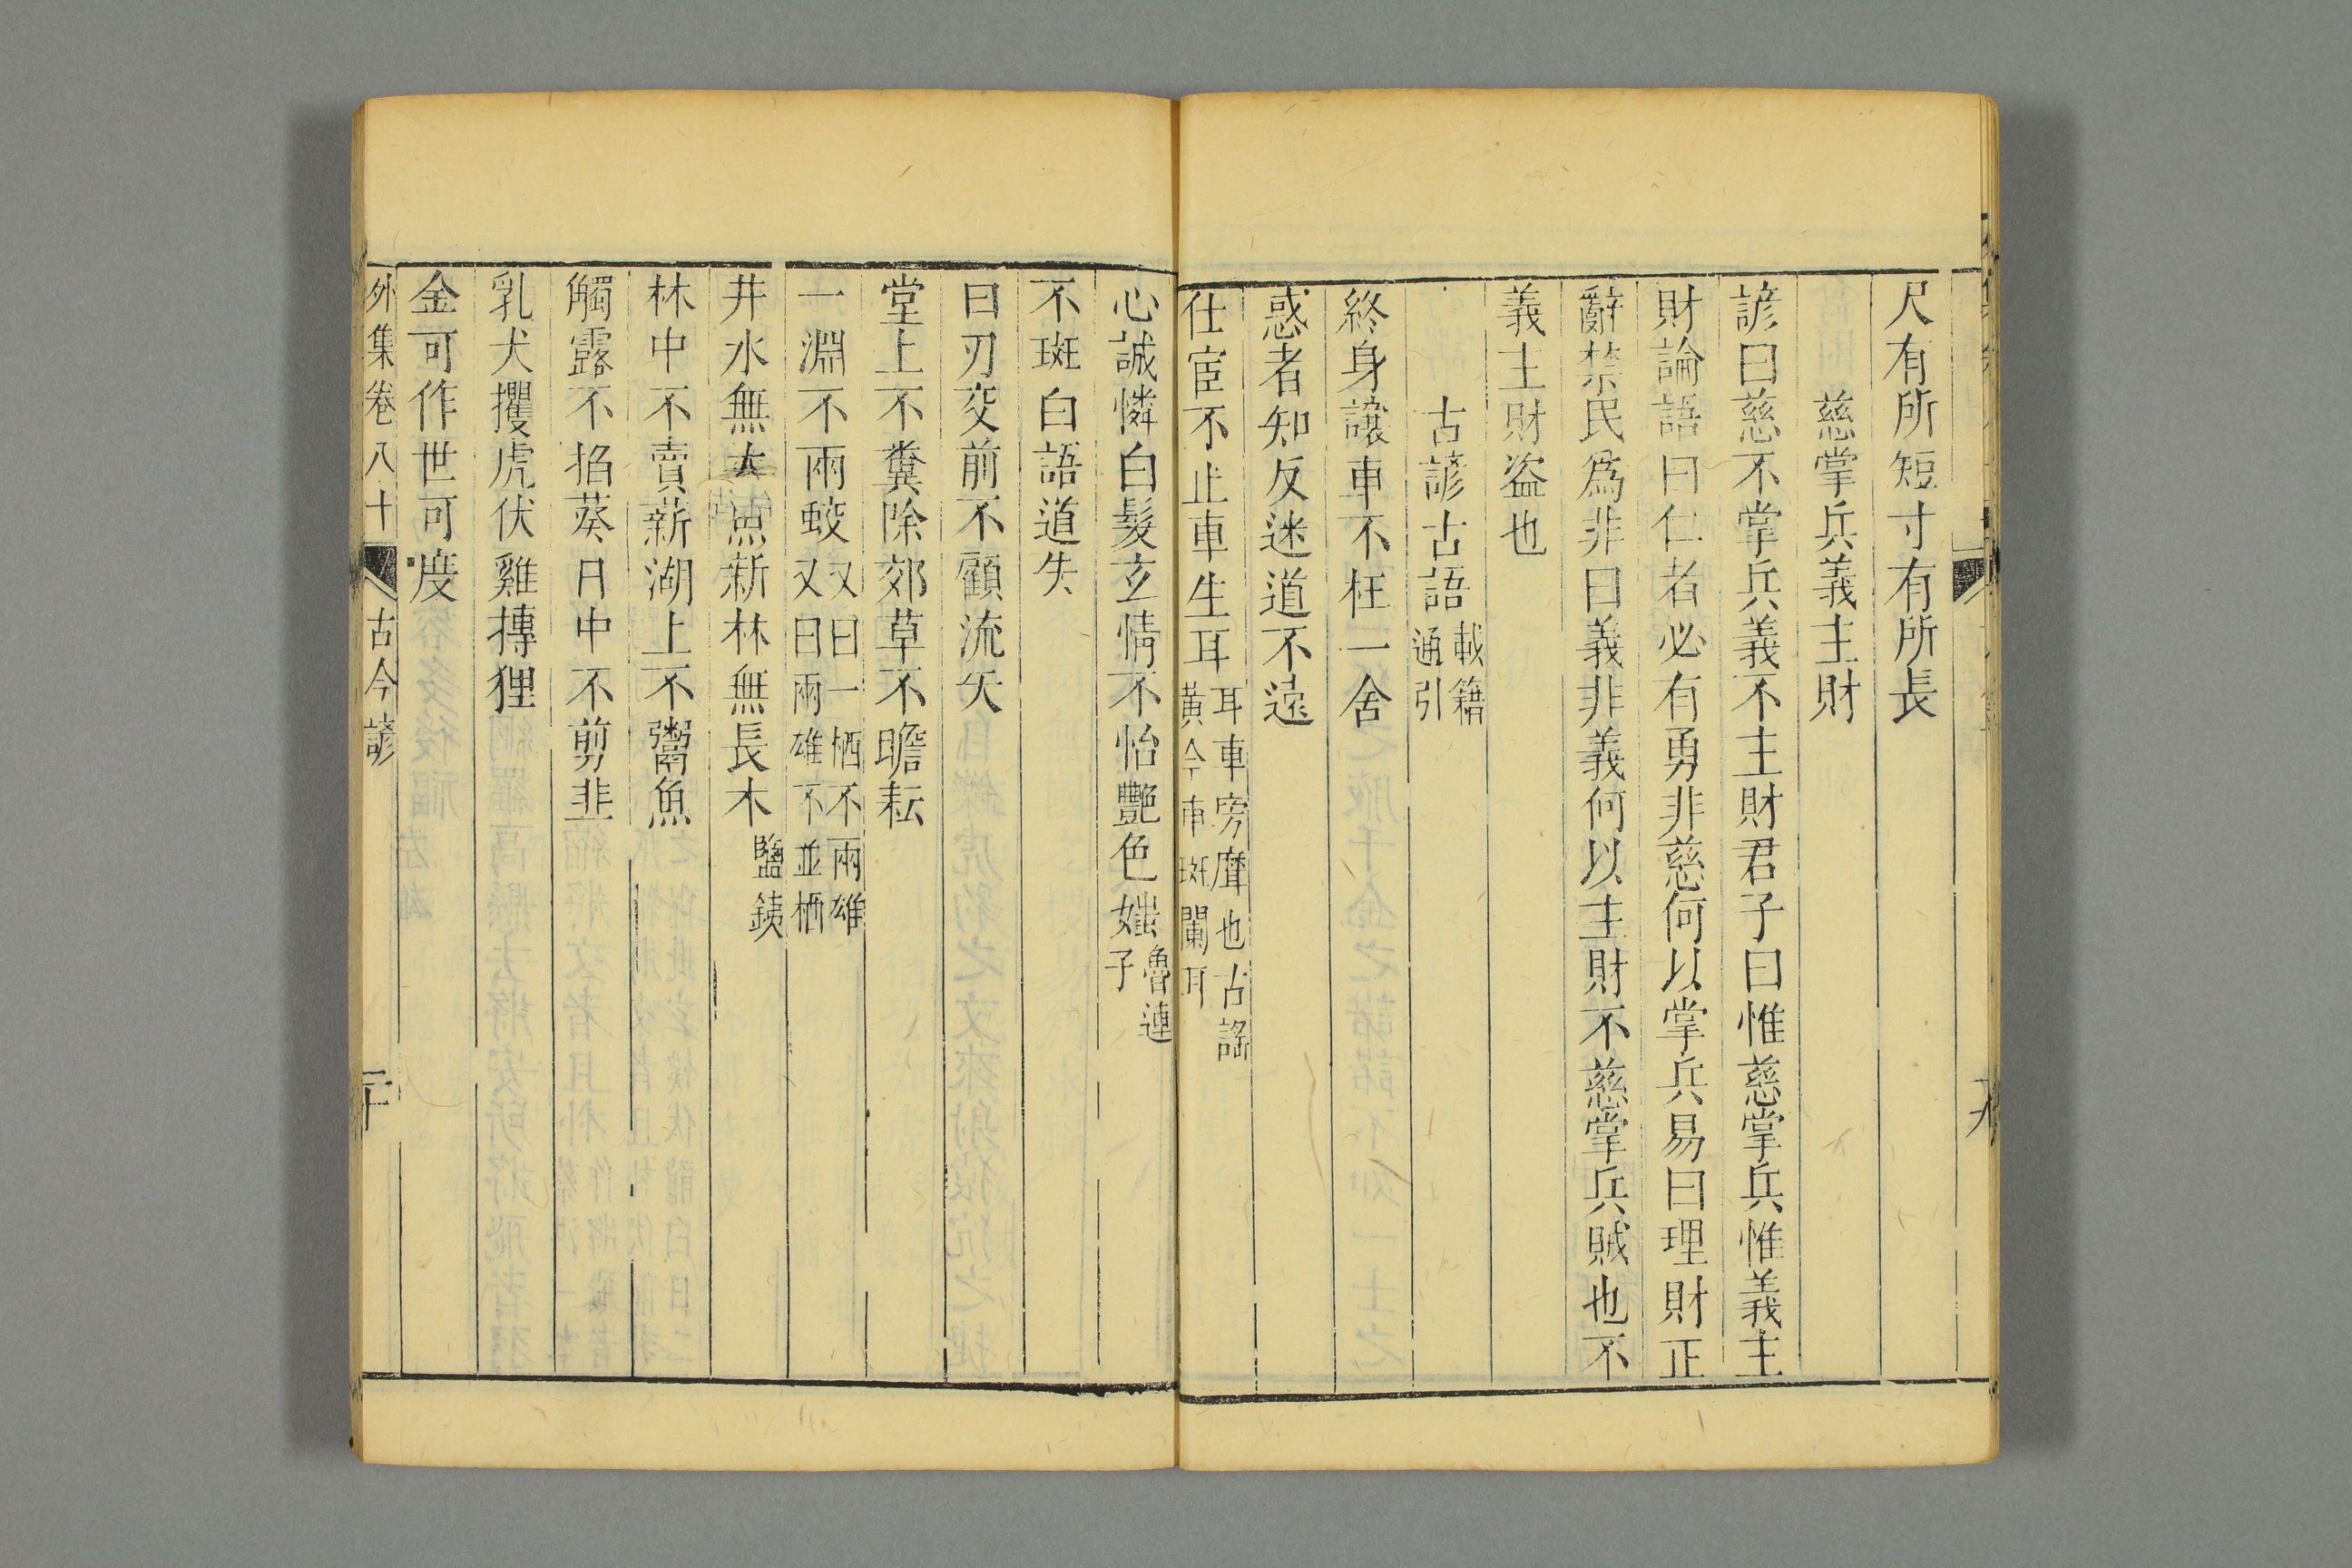 尺有所短寸有所長
慈掌兵義主財
諺曰慈不掌兵義不主財君子曰惟慈掌兵惟義主
財論語曰仁者必有勇非慈何以掌兵易曰理財正
辭禁民爲非曰義非義何以主財不慈掌兵賊也不
義主財盗也
古諺古語載籍
通引
終身讓車不枉一舍
惑者知反迷道不遠
仕宦不止車生耳耳車旁㕓也古謠
黃今車斑闌耳
心誠憐白髮玄情不怡艷色媸魯連
子
不斑白語道失
白刃交前不顧流矢
堂上不糞除郊草不瞻耘
一淵不兩蛟又曰一栖不兩雄
又曰兩雄不並栖
井水無大魚新林無長木鹽鐵
林中不賣薪湖上不鬻魚
觸露不掐葵日中不剪韭
乳犬攫虎伏雞搏狸
金可作世可度
外集卷八十 古今諺 二十